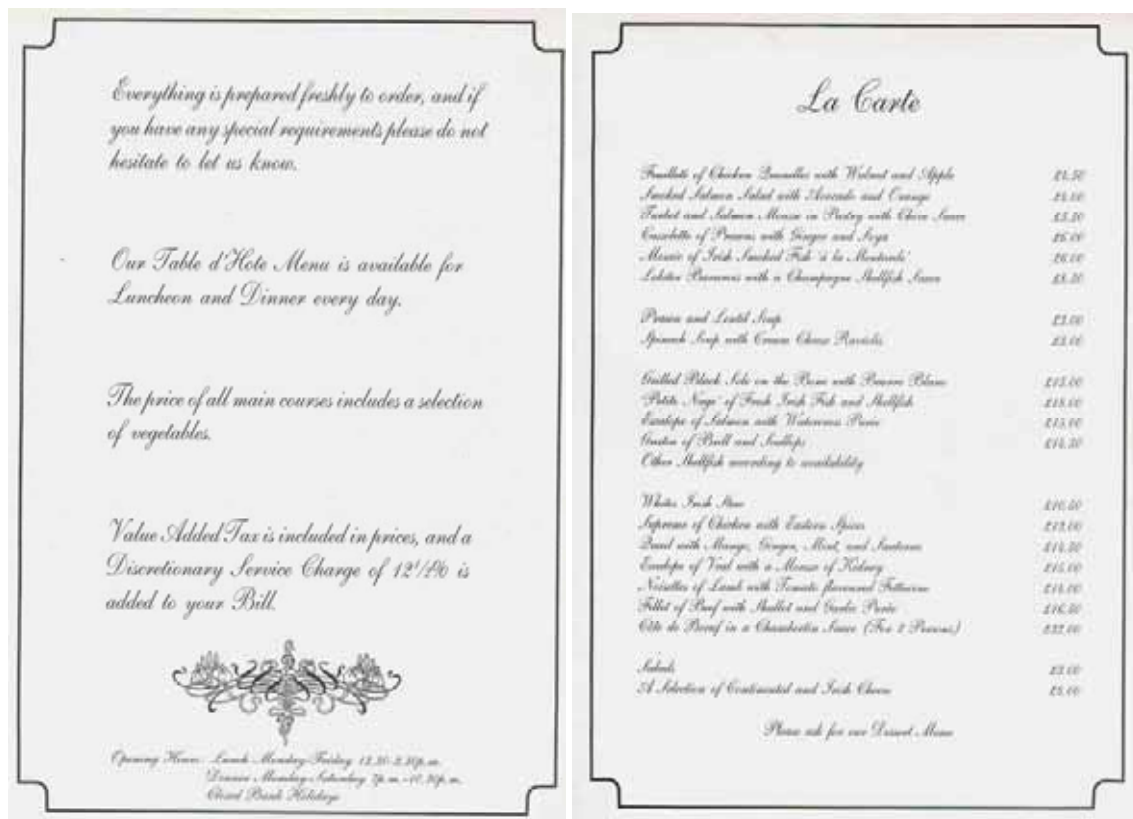 Everything is prepared freshly to order, and if
you have any special requirements please do not
hesitate to let us know.
Our Table d'Hote Menu is available for
Luncheon and Dinner every day.
The price of all main courses includes a selection
of vegetables.
Value Added Tax is included in prices, and a
Discretionary Service Charge of 12½% is
added to your Bill.
Opening Hours: Lunch Monday-Friday 12.30-2.30p.m.
Dinner Monday-Saturday 7p.m.-10.30p.m.
Closed Bank Holidays
La Carte
of Chicken Quenelles with Walnut and Apple
Smoked Salmon Salad with Avocado and Orange
Turbot and Salmon Mousse in Pastry with Chive Sauce
Cassolette of Prawns with Ginger and Soya £6.00
Mosaic of Irish Smoked Fish 'à la Moutarde' £6.00
Lobster with a Champagne Shellfish Sauce
and Lentil Soup £3.00
Spinach Soup with Cream Cheese Raviolis £3.00
Grilled Black Sole on the Bone with Beurre Blanc £15.00
'Petite Nage' of Fresh Irish Fish and Shellfish
Escalope of Salmon with Watercress Purée
of Brill and Scallops
Other Shellfish according to availability
White Irish Stew £10.50
Supreme of Chicken with Eastern Spices
Quail with Mango, Ginger, Mint, and Sauternes
Escalope of Veal with a Mousse of Kidney £15.00
Noisettes of Lamb with Tomato flavoured Fettucine
Fillet of Beef with Shallot and Garlic Purée £16.50
Côte de Boeuf in a Chambertin Sauce (For 2 Persons)
Salads
A Selection of Continental and Irish Cheese
Please ask for our Dessert Menu